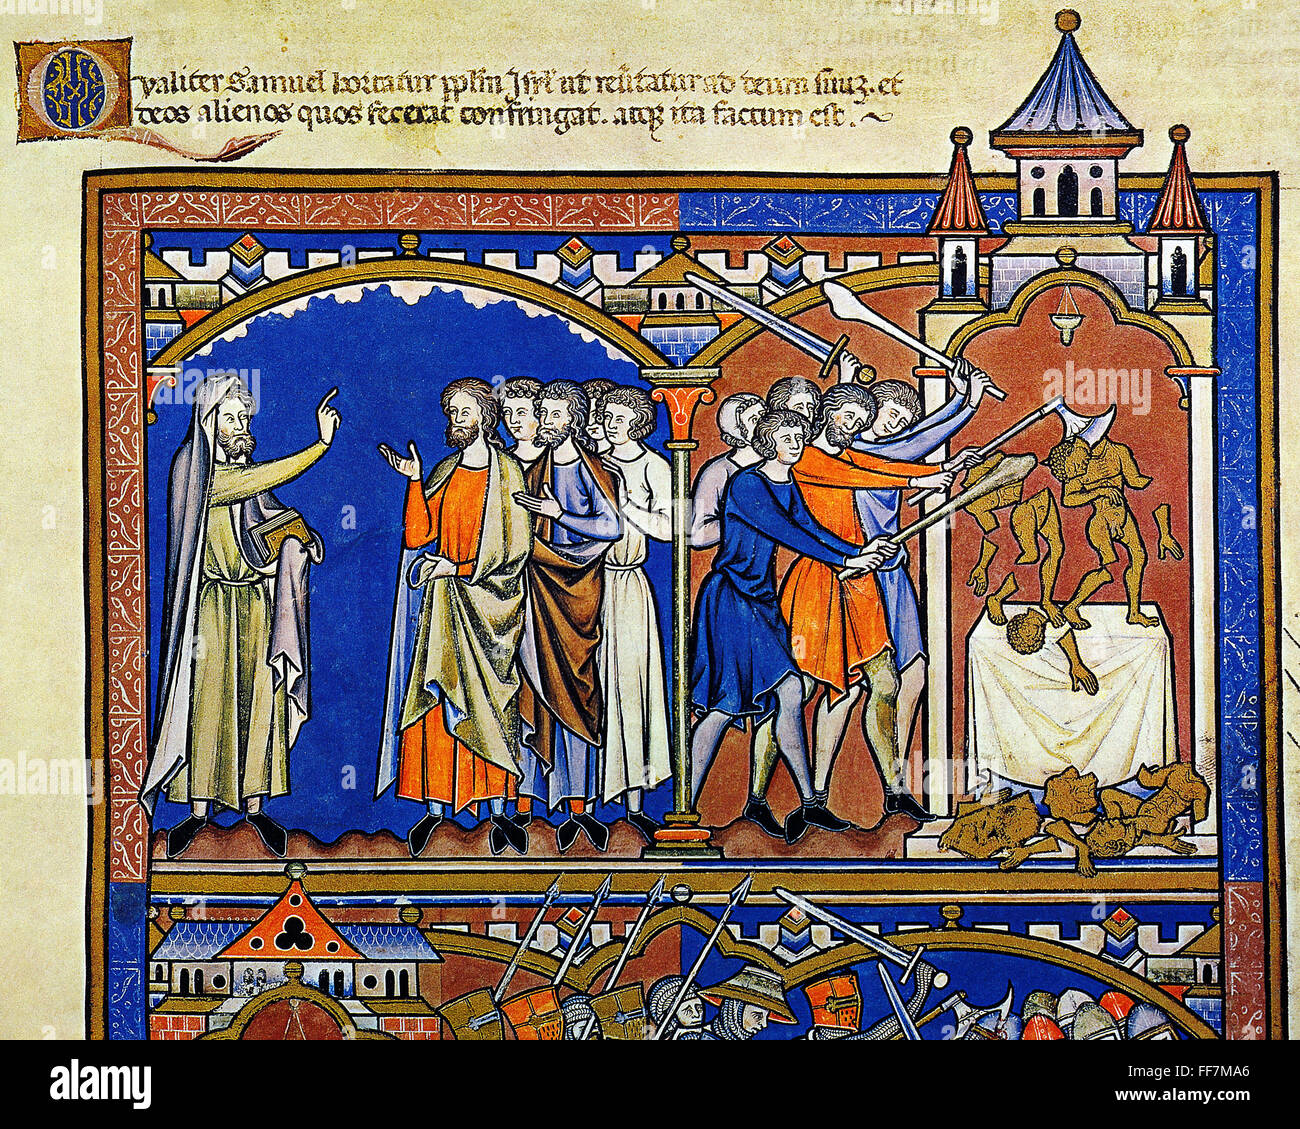 Qualiter Samuel hortatur pplm Isrl ut reuertatur ad deum suuz. et
deos alienos quos fecerat confringat. atqz ita factum est.
alamy
alamy
Image ID: FF7MA6
www.alamy.com